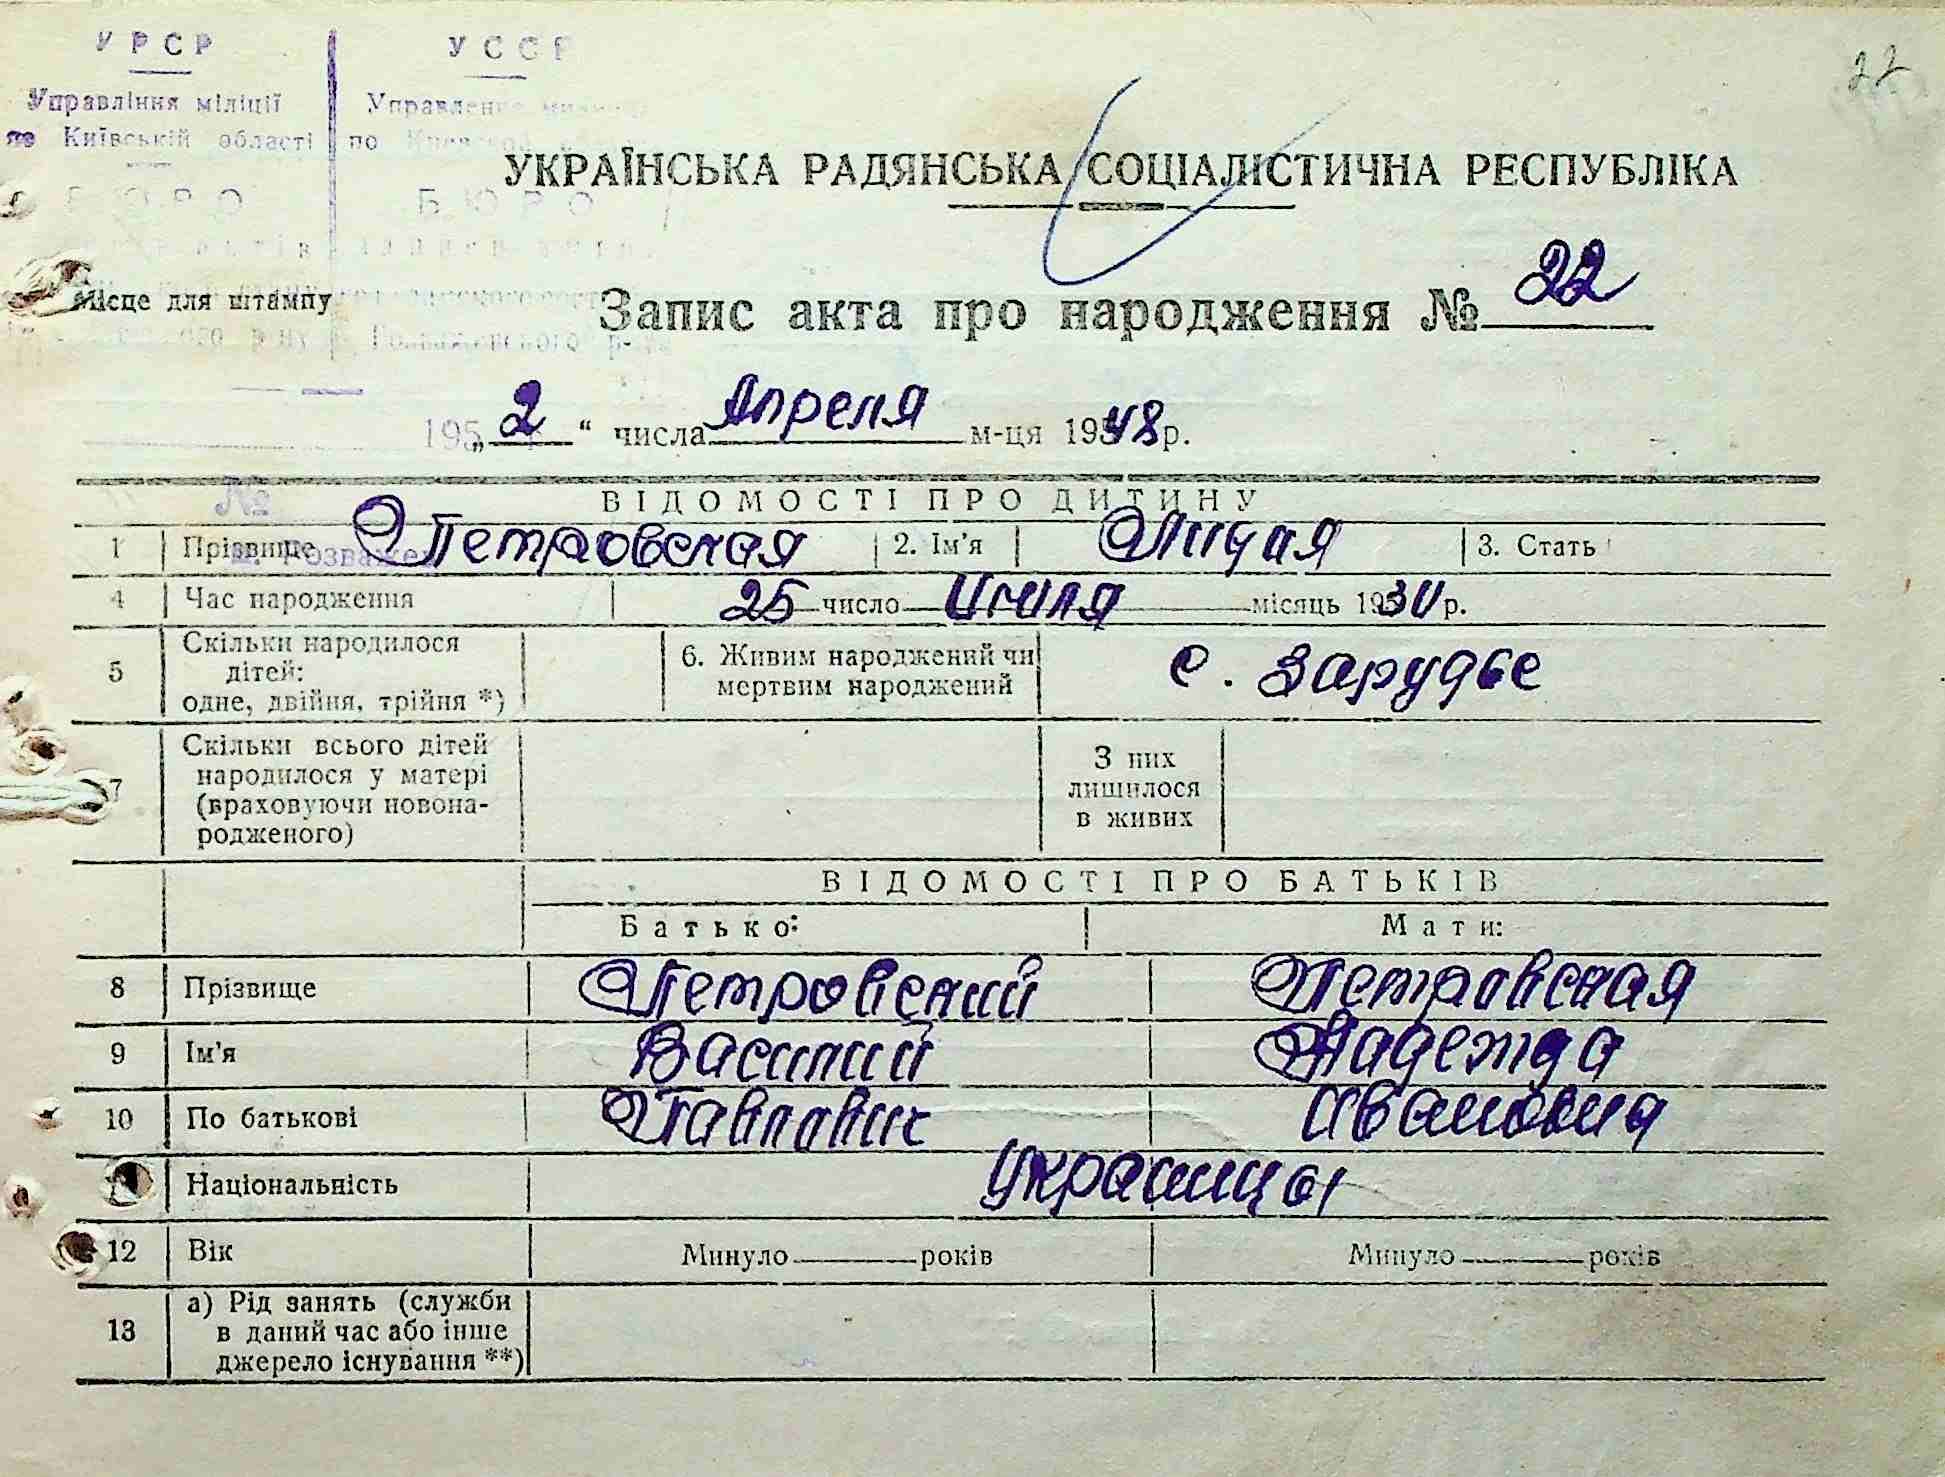 УРСР УССР
Управління міліції Управление
по Київській області по
БЮРО БЮРО
22
УКРАЇНСЬКА РАДЯНСЬКА СОЦІАЛІСТИЧНА РЕСПУБЛІКА
Місце для штампу
Запис акта про народження № 22
195
„ 2 “ числа Апреля м-ця 1948 р.
№
ВІДОМОСТІ ПРО ДИТИНУ
1 Прізвище Петровская 2. Ім'я Лидия 3. Стать
4 Час народження 25 число Июля місяць 1930 р.
5 Скільки народилося дітей: одне, двійня, трійня *) 6. Живим народжений чи мертвим народжений с. Зарудье
7 Скільки всього дітей народилося у матері (враховуючи новонародженого) З них лишилося в живих
ВІДОМОСТІ ПРО БАТЬКІВ
Батько: Мати:
8 Прізвище Петровский Петровская
9 Ім'я Василий Надежда
10 По батькові Павлович Ивановна
Національність Украинцы
12 Вік Минуло ____ років Минуло ____ років
13 а) Рід занять (служби в даний час або інше джерело існування **)